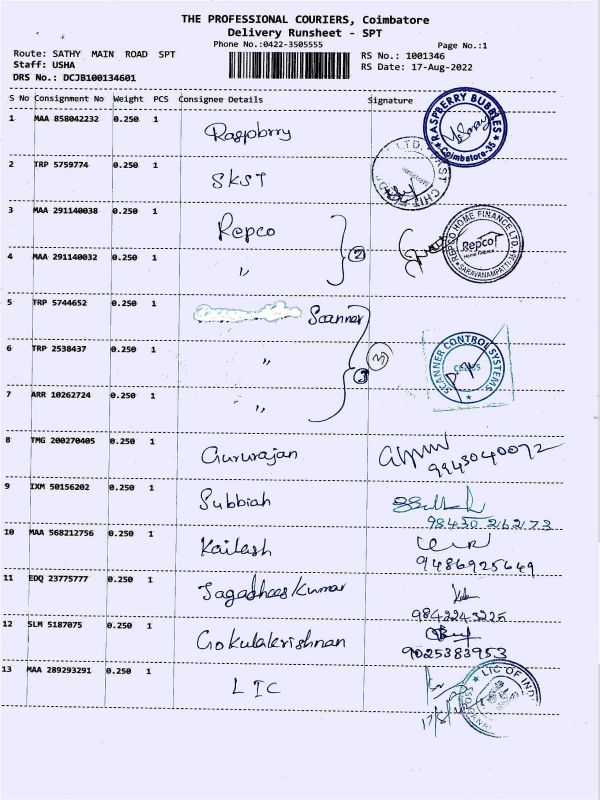 THE PROFESSIONAL COURIERS, Coimbatore
Delivery Runsheet - SPT
Phone No.:0422-3505555
Page No.:1
Route: SATHY MAIN ROAD SPT
RS No.: 1001346
Staff: USHA
RS Date: 17-Aug-2022
DRS No.: DCJB100134601
S No Consignment No Weight PCS Consignee Details Signature
1 MAA 858042232 0.250 1 Raspbrry
RASPBERRY BUBBLES
Coimbatore-35
2 TRP 5759774 0.250 1 SKST
3 MAA 291140038 0.250 1 Repco
REPCO HOME FINANCE LTD.
Repco
Home Finance
SARAVANAMPATTI-35
4 MAA 291140032 0.250 1 〃 2
5 TRP 5744652 0.250 1 Scanner
6 TRP 2538437 0.250 1 〃 3
SCANNER CONTROL SYSTEMS
7 ARR 10262724 0.250 1 〃 3
8 TMG 200270405 0.250 1 Gururajan
9943040072
9 IXM 50156202 0.250 1 Subbiah
98430 26273
10 MAA 568212756 0.250 1 Kailash
9486925649
11 EDQ 23775777 0.250 1 Jagadheeskumar
9842243225
12 SLM 5187075 0.250 1 Gokulakrishnan
9025383953
13 MAA 289293291 0.250 1 LIC
LIC OF IND